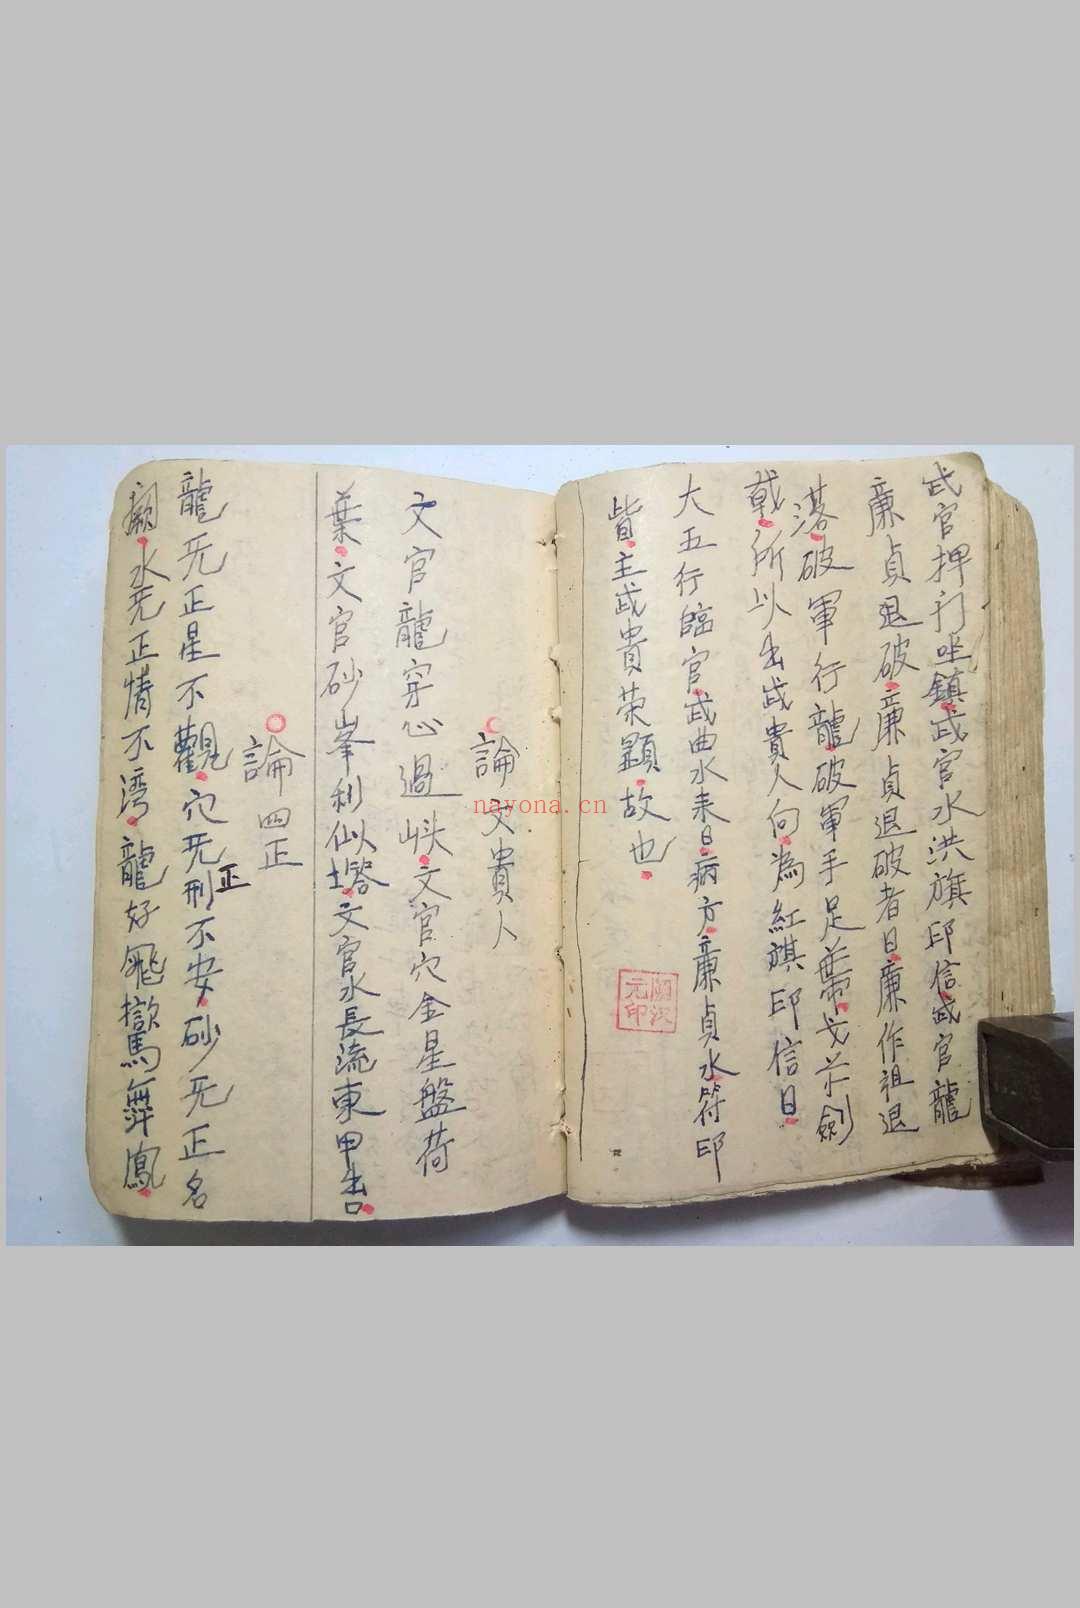 武官押刀坐鎮武官水洪旗印信武官龍
廉貞退破廉貞退破者曰廉作祖退
落破軍行龍破軍手足帶戈不劍
戟所以出武貴人向為紅旗印信曰
大五行臨官武曲水来曰病方廉貞水符印
皆主武貴荣顕故也
論文貴人
文官龍穿心過峡文官穴金星盤荷
葉文官砂峯利似塔文官水長流東甲出口
論四正
龍旡正星不觀穴旡正刑不安砂旡正名
水旡正情不湾龍好飛鸞舞鳳
元印
nayona.cn